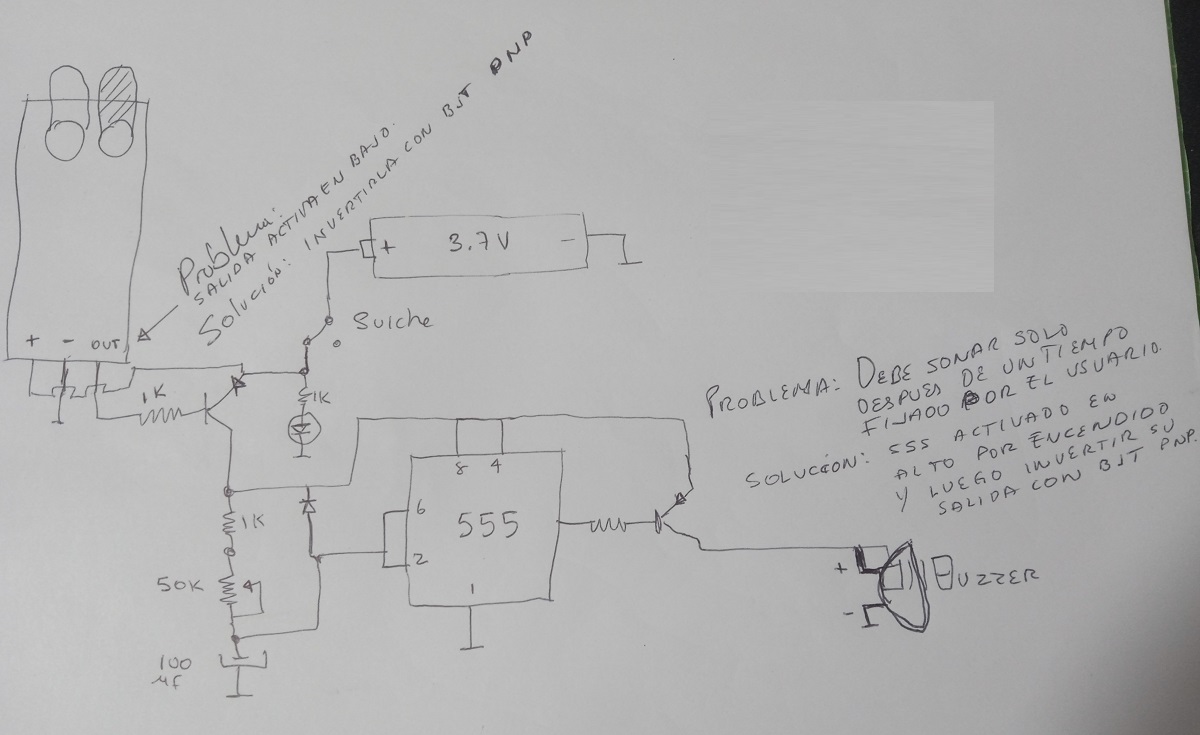 Problema:
SALIDA ACTIVA EN BAJO.
Solución: INVERTIRLA CON BJT PNP
+ - OUT
1K
+ 3.7V -
Suiche
1K
PROBLEMA: DEBE SONAR SOLO
DESPUES DE UN TIEMPO
FIJADO POR EL USUARIO.
SOLUCIÓN: 555 ACTIVADO EN
ALTO POR ENCENDIDO
Y LUEGO INVERTIR SU
SALIDA CON BJT PNP.
8 4
6
555
2
1
1K
50K
100
µf
+
-
BUZZER